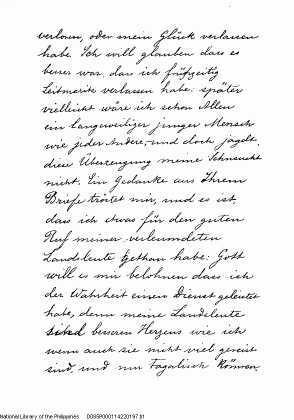 verloren, oder mein Glück verlassen
habe. Ich will glauben dass es
besser war dass ich frühzeitig
Leitmeritz verlassen habe: später
vielleicht wäre ich schon Allen
ein langweiliger junger Mensch
wie jeder Andere, und doch jagdt
diese Überzeugung meine Sehnsucht
nicht. Ein Gedanke aus Ihrem
Briefe tröstet mir, und es ist,
dass ich etwas für den guten
Ruf meiner verleumdeten
Landsleute gethan habe: Gott
will es mir belohnen dass ich
der Wahrheit einen Dienst geleistet
habe, denn meine Landsleute
sind besseren Herzens wie ich
wenn auch sie nicht viel gereist
sind, und nur Tagalisch können.
National Library of the Philippines DG95P000114220197.tif